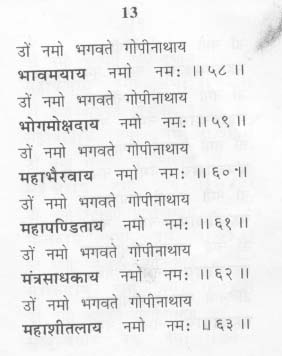 13
उों नमो भगवते गोपीनाथाय
भावमयाय नमो नमः ॥ ५८ ॥
उों नमो भगवते गोपीनाथाय
भोगमोक्षदाय नमो नमः ॥ ५९ ॥
उों नमो भगवते गोपीनाथाय
महाभैरवाय नमो नमः ॥ ६० ॥
उों नमो भगवते गोपीनाथाय
महापण्डिताय नमो नमः ॥ ६१ ॥
उों नमो भगवते गोपीनाथाय
मंत्रसाधकाय नमो नमः ॥ ६२ ॥
उों नमो भगवते गोपीनाथाय
महाशीतलाय नमो नमः ॥ ६३ ॥